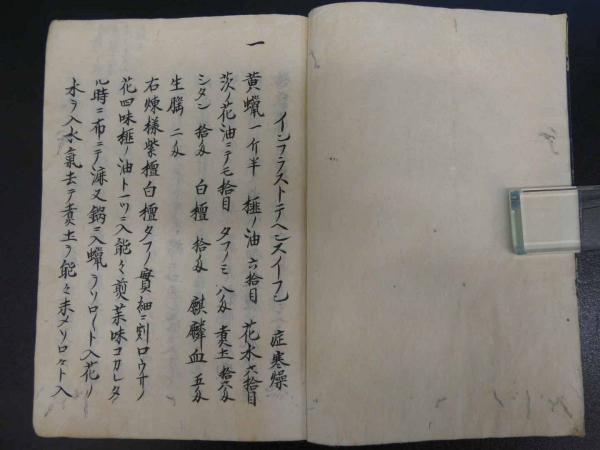 一
インフラストテヘンスイフシ 症寒燥
黄蠟 一斤半 榧ノ油 六拾目 花水 六拾目
茨ノ花油ニテモ拾目 タフノミ 八匁 黄土 拾六匁
シタン 拾匁 白檀 拾匁 麒麟血 五匁
生臈 二匁
右煉様紫檀白檀タフノ實細ニ刻ロウサノ
花四味榧ノ油ト一ツニ入能々煎薬味コカレタ
ル時ニ布ニテ漉又鍋ニ入蠟ヲソロ〳〵ト入花ノ
水ヲ入水氣去テ黄土ヲ能々末メソロ〳〵ト入